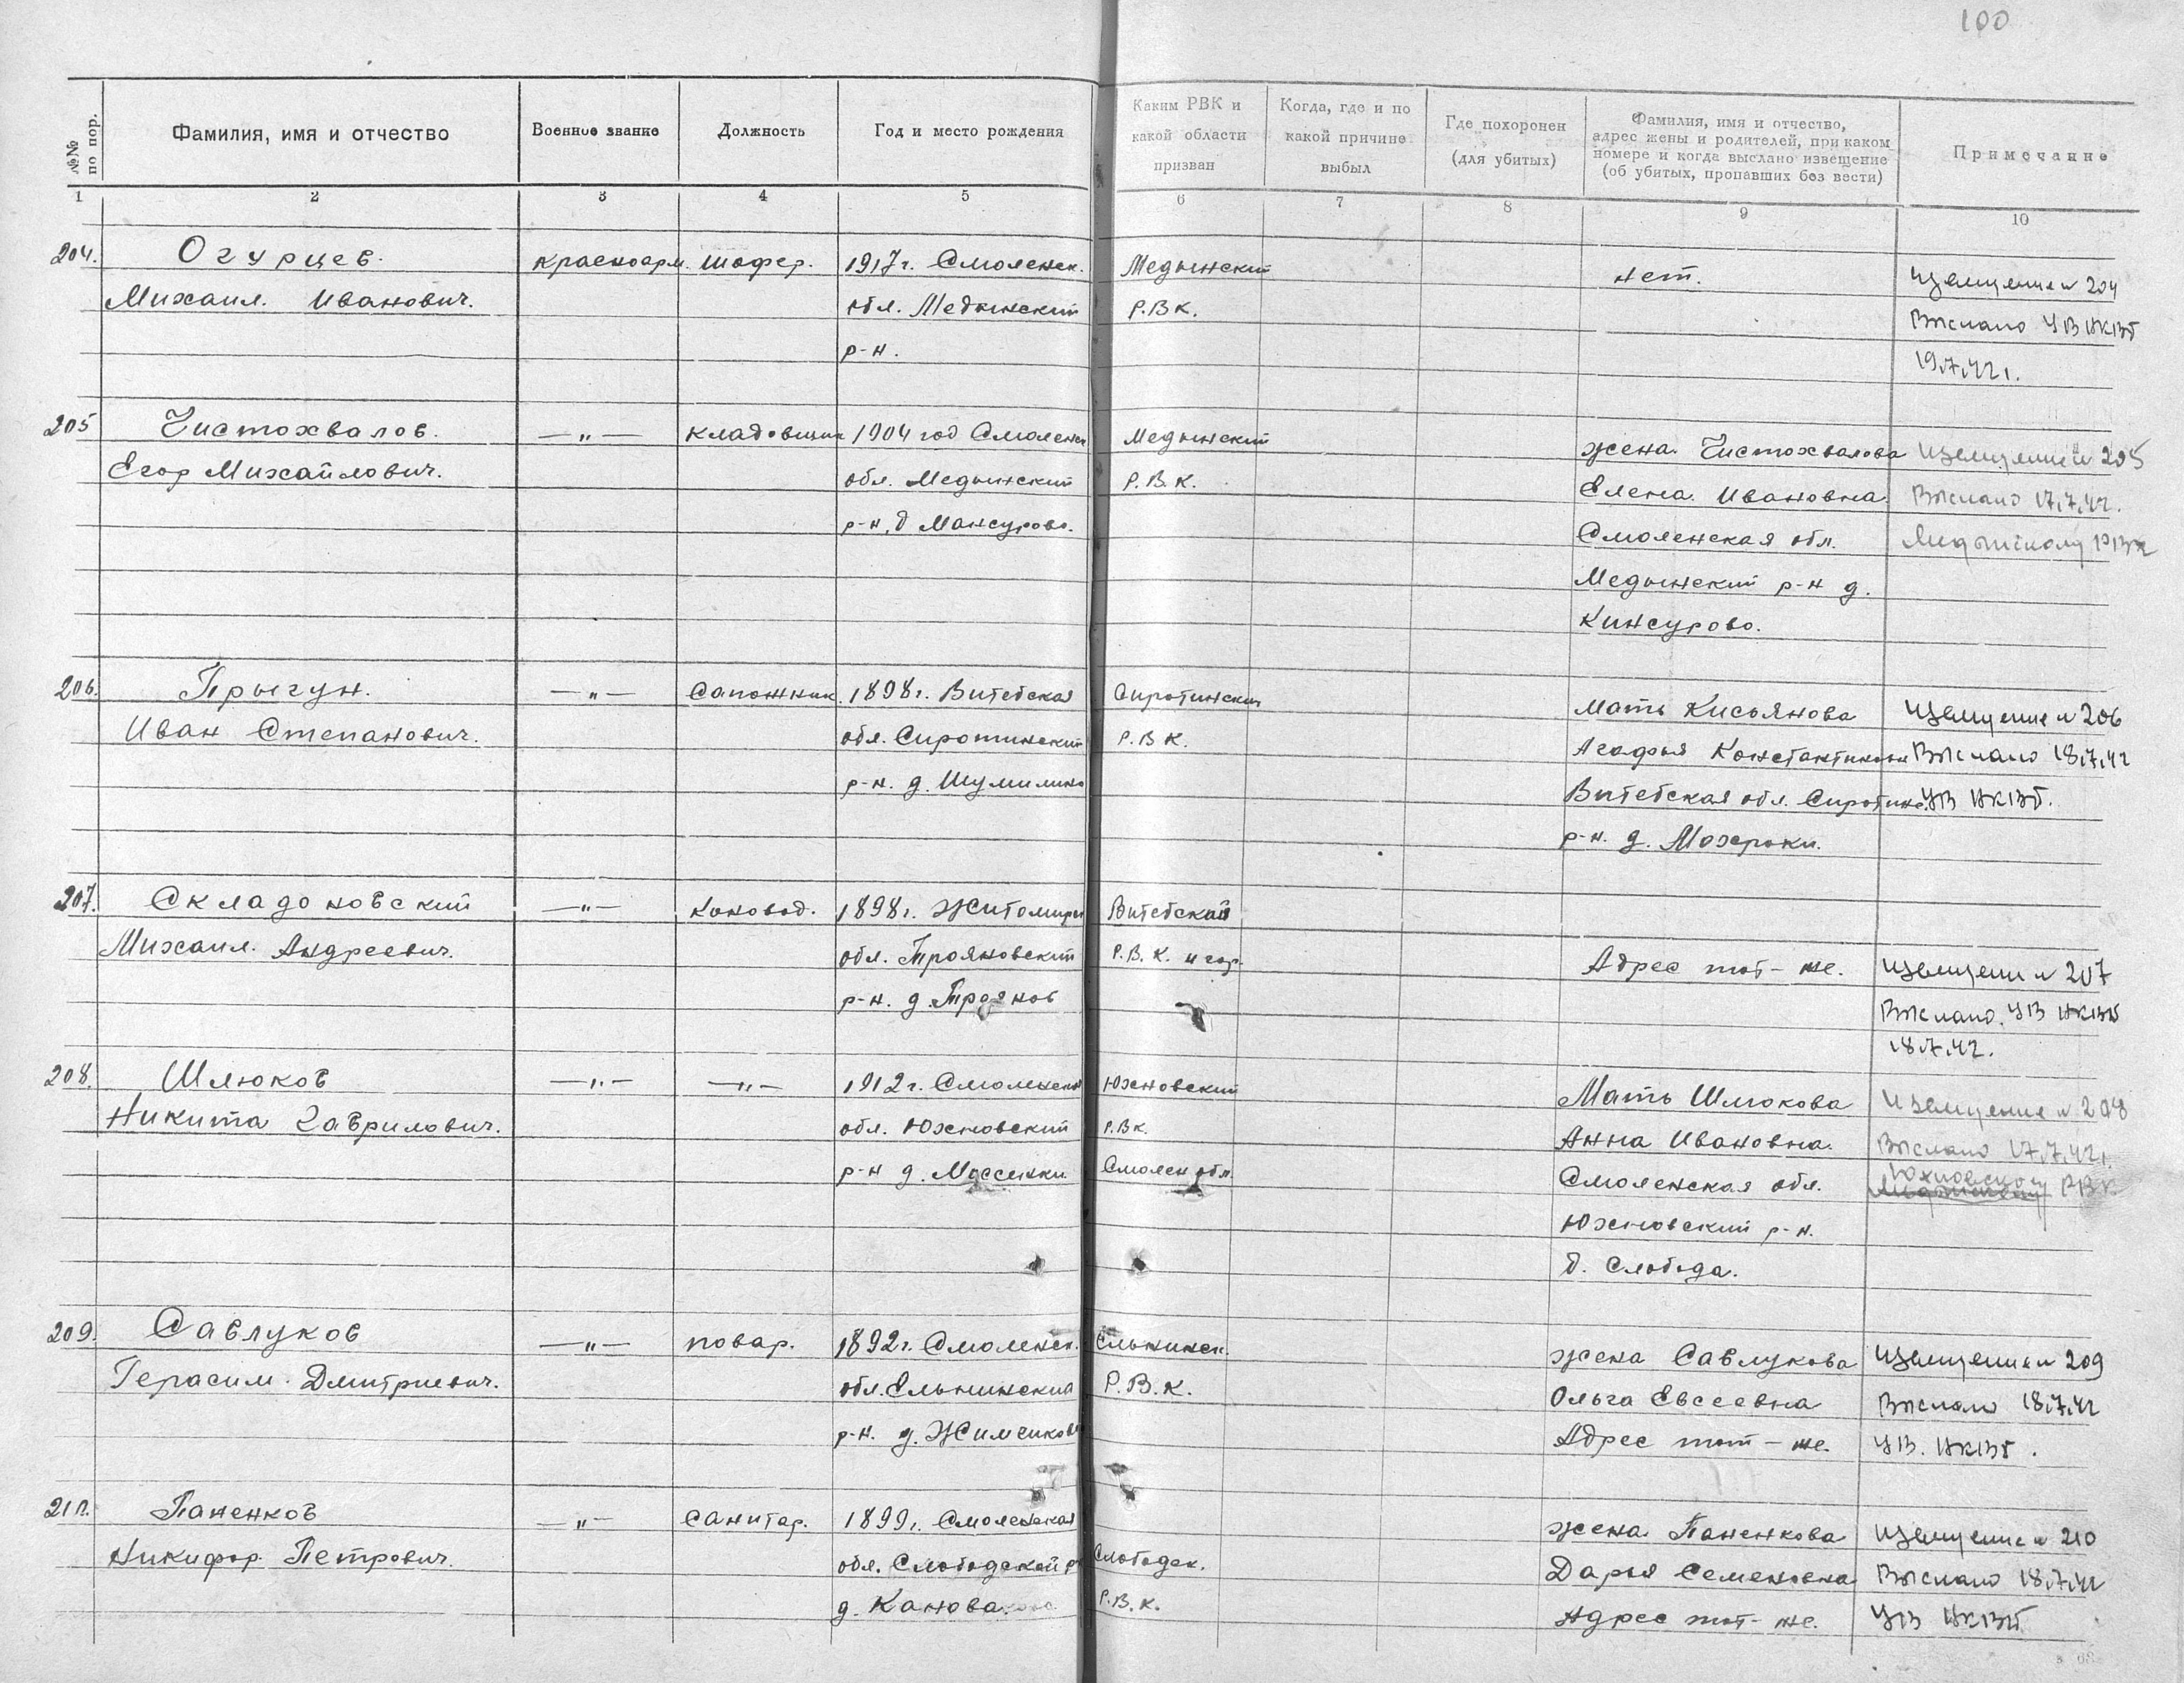 100
№№ по пор.
Фамилия, имя и отчество
Военное звание
Должность
Год и место рождения
Каким РВК и какой области призван
Когда, где и по какой причине выбыл
Где похоронен (для убитых)
Фамилия, имя и отчество,
адрес жены и родителей, при каком
номере и когда выслано извещение
(об убитых, пропавших без вести)
Примечание
1 2 3 4 5 6 7 8 9 10
204. Огурцев. красноарм. шофер. 1917 г. Смоленск. Медынский нет. Извещение № 204
Михаил. Иванович. обл. Медынский Р.В.К. Выслано
р-н. 19.7.42 г.
205 Чистохвалов. —„— кладовщик 1904 год Смоленск Медынский жена. Чистохвалова Извещение № 205
Егор Михайлович. обл. Медынский Р.В.К. Елена. Ивановна. Выслано 17.7.42.
р-н, д Мансурово. Смоленская обл. Медынскому РВК
Медынский р-н д.
Кинсурово.
206. Прыгун. —„— Сапожник. 1898 г. Витебская Сиротинский мать Касьянова Извещение № 206
Иван Степанович. обл. Сиротинский Р.В.К. Агафья Константиновна Выслано 18.7.42
р-н. д. Шумилино Витебская обл. Сиротинс.
р-н. д. Мохроки.
207. Складоновский —„— Коновод. 1898 г. Житомирс Витебский Адрес тот-же. Извещение № 207
Михаил. Андреевич. обл. Трояновский Р.В.К. и гор. Выслано.
р-н. д. Троянов 18.7.42.
208. Шлюков —„— —„— 1912 г. Смоленская Юхновский Мать Шлюкова Извещение № 208
Никита Гаврилович. обл. Юхновский Р.В.К. Анна Ивановна. Выслано 17.7.42 г.
р-н д. Моссенки Смолен обл. Смоленская обл. Юхновскому РВК
Юхновский р-н.
д. Слобода.
209. Савлуков —„— повар. 1892 г. Смоленск. Ельнинск. жена Савлукова Извещение № 209
Герасим. Дмитриевич. обл. Ельнинский Р.В.К. Ольга Евсеевна Выслано 18.7.42
р-н. д. Адрес тот-же.
210. Паненков —„— Санитар. 1899 г. Смоленская Слободск. жена. Паненкова Извещение № 210
Никифор. Петрович. обл. Слободской р Р.В.К. Дарья Семеновна Выслано 18.7.42
д. Канова. Адрес тот-же.